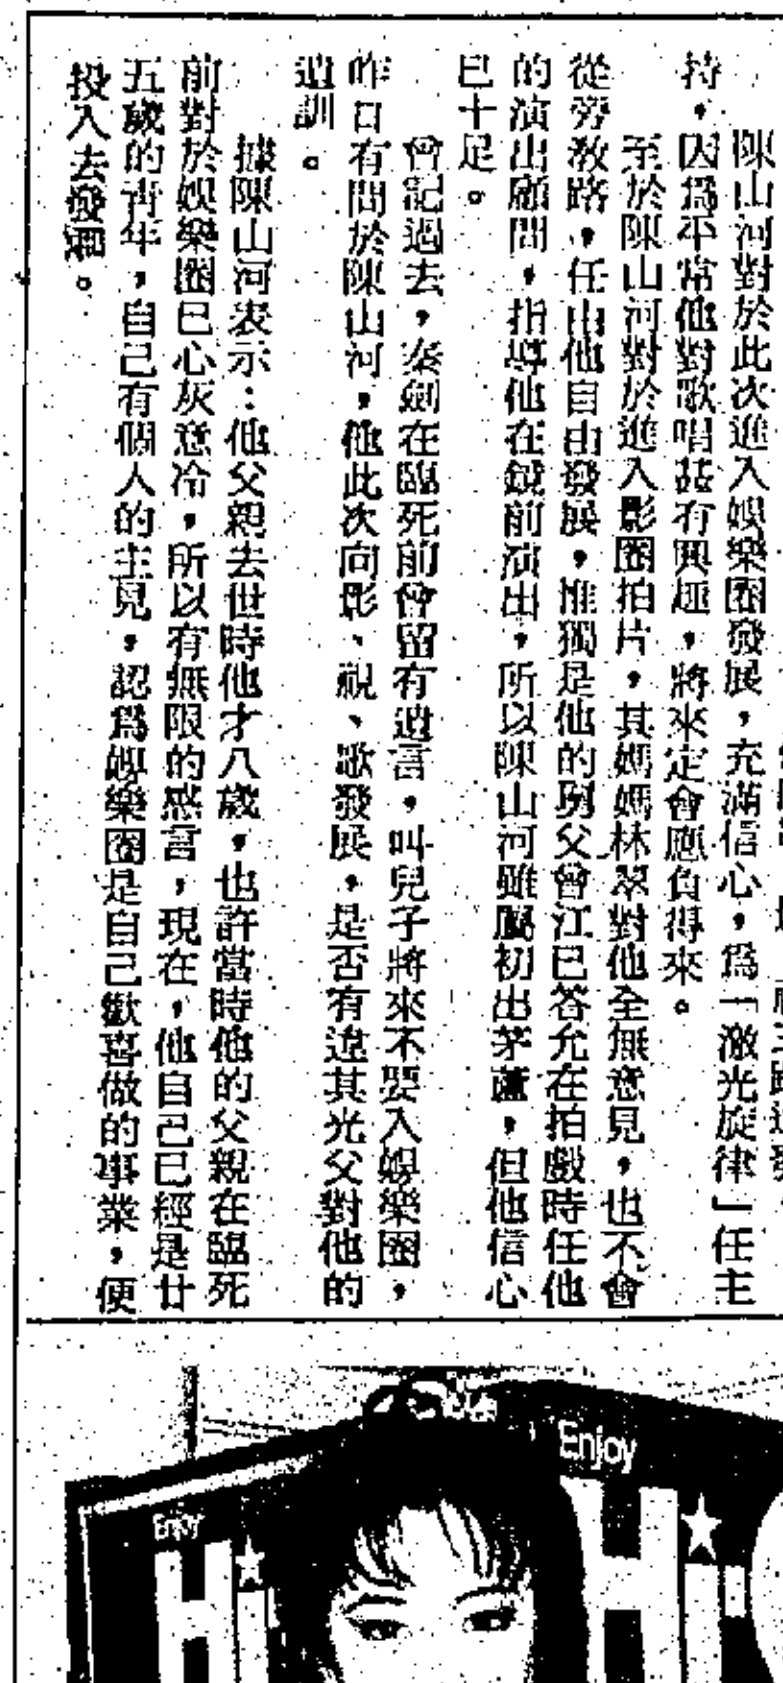 陳山河對於此次進入娛樂圈發展，充滿信心，爲「激光旋律」任主
持，因爲平常他對歌唱甚有興趣，將來定會應負得來。
至於陳山河對於進入影圈拍片，其媽媽林翠對他全無意見，也不會
從旁教路，任由他自由發展，惟獨是他的舅父曾江已答允在拍戲時任他
的演出顧問，指導他在鏡前演出，所以陳山河雖屬初出茅蘆，但他信心
已十足。
曾記過去，秦劍在臨死前曾留有遺言，叫兒子將來不要入娛樂圈，
昨日有問於陳山河，他此次向影、視、歌發展，是否有違其先父對他的
遺訓。
據陳山河表示：他父親去世時他才八歲，也許當時他的父親在臨死
前對於娛樂圈已心灰意冷，所以有無限的感言，現在，他自己已經是廿
五歲的青年，自己有個人的主見，認爲娛樂圈是自己歡喜做的事業，便
投入去發。
Enjoy
Enjoy
HI
HI